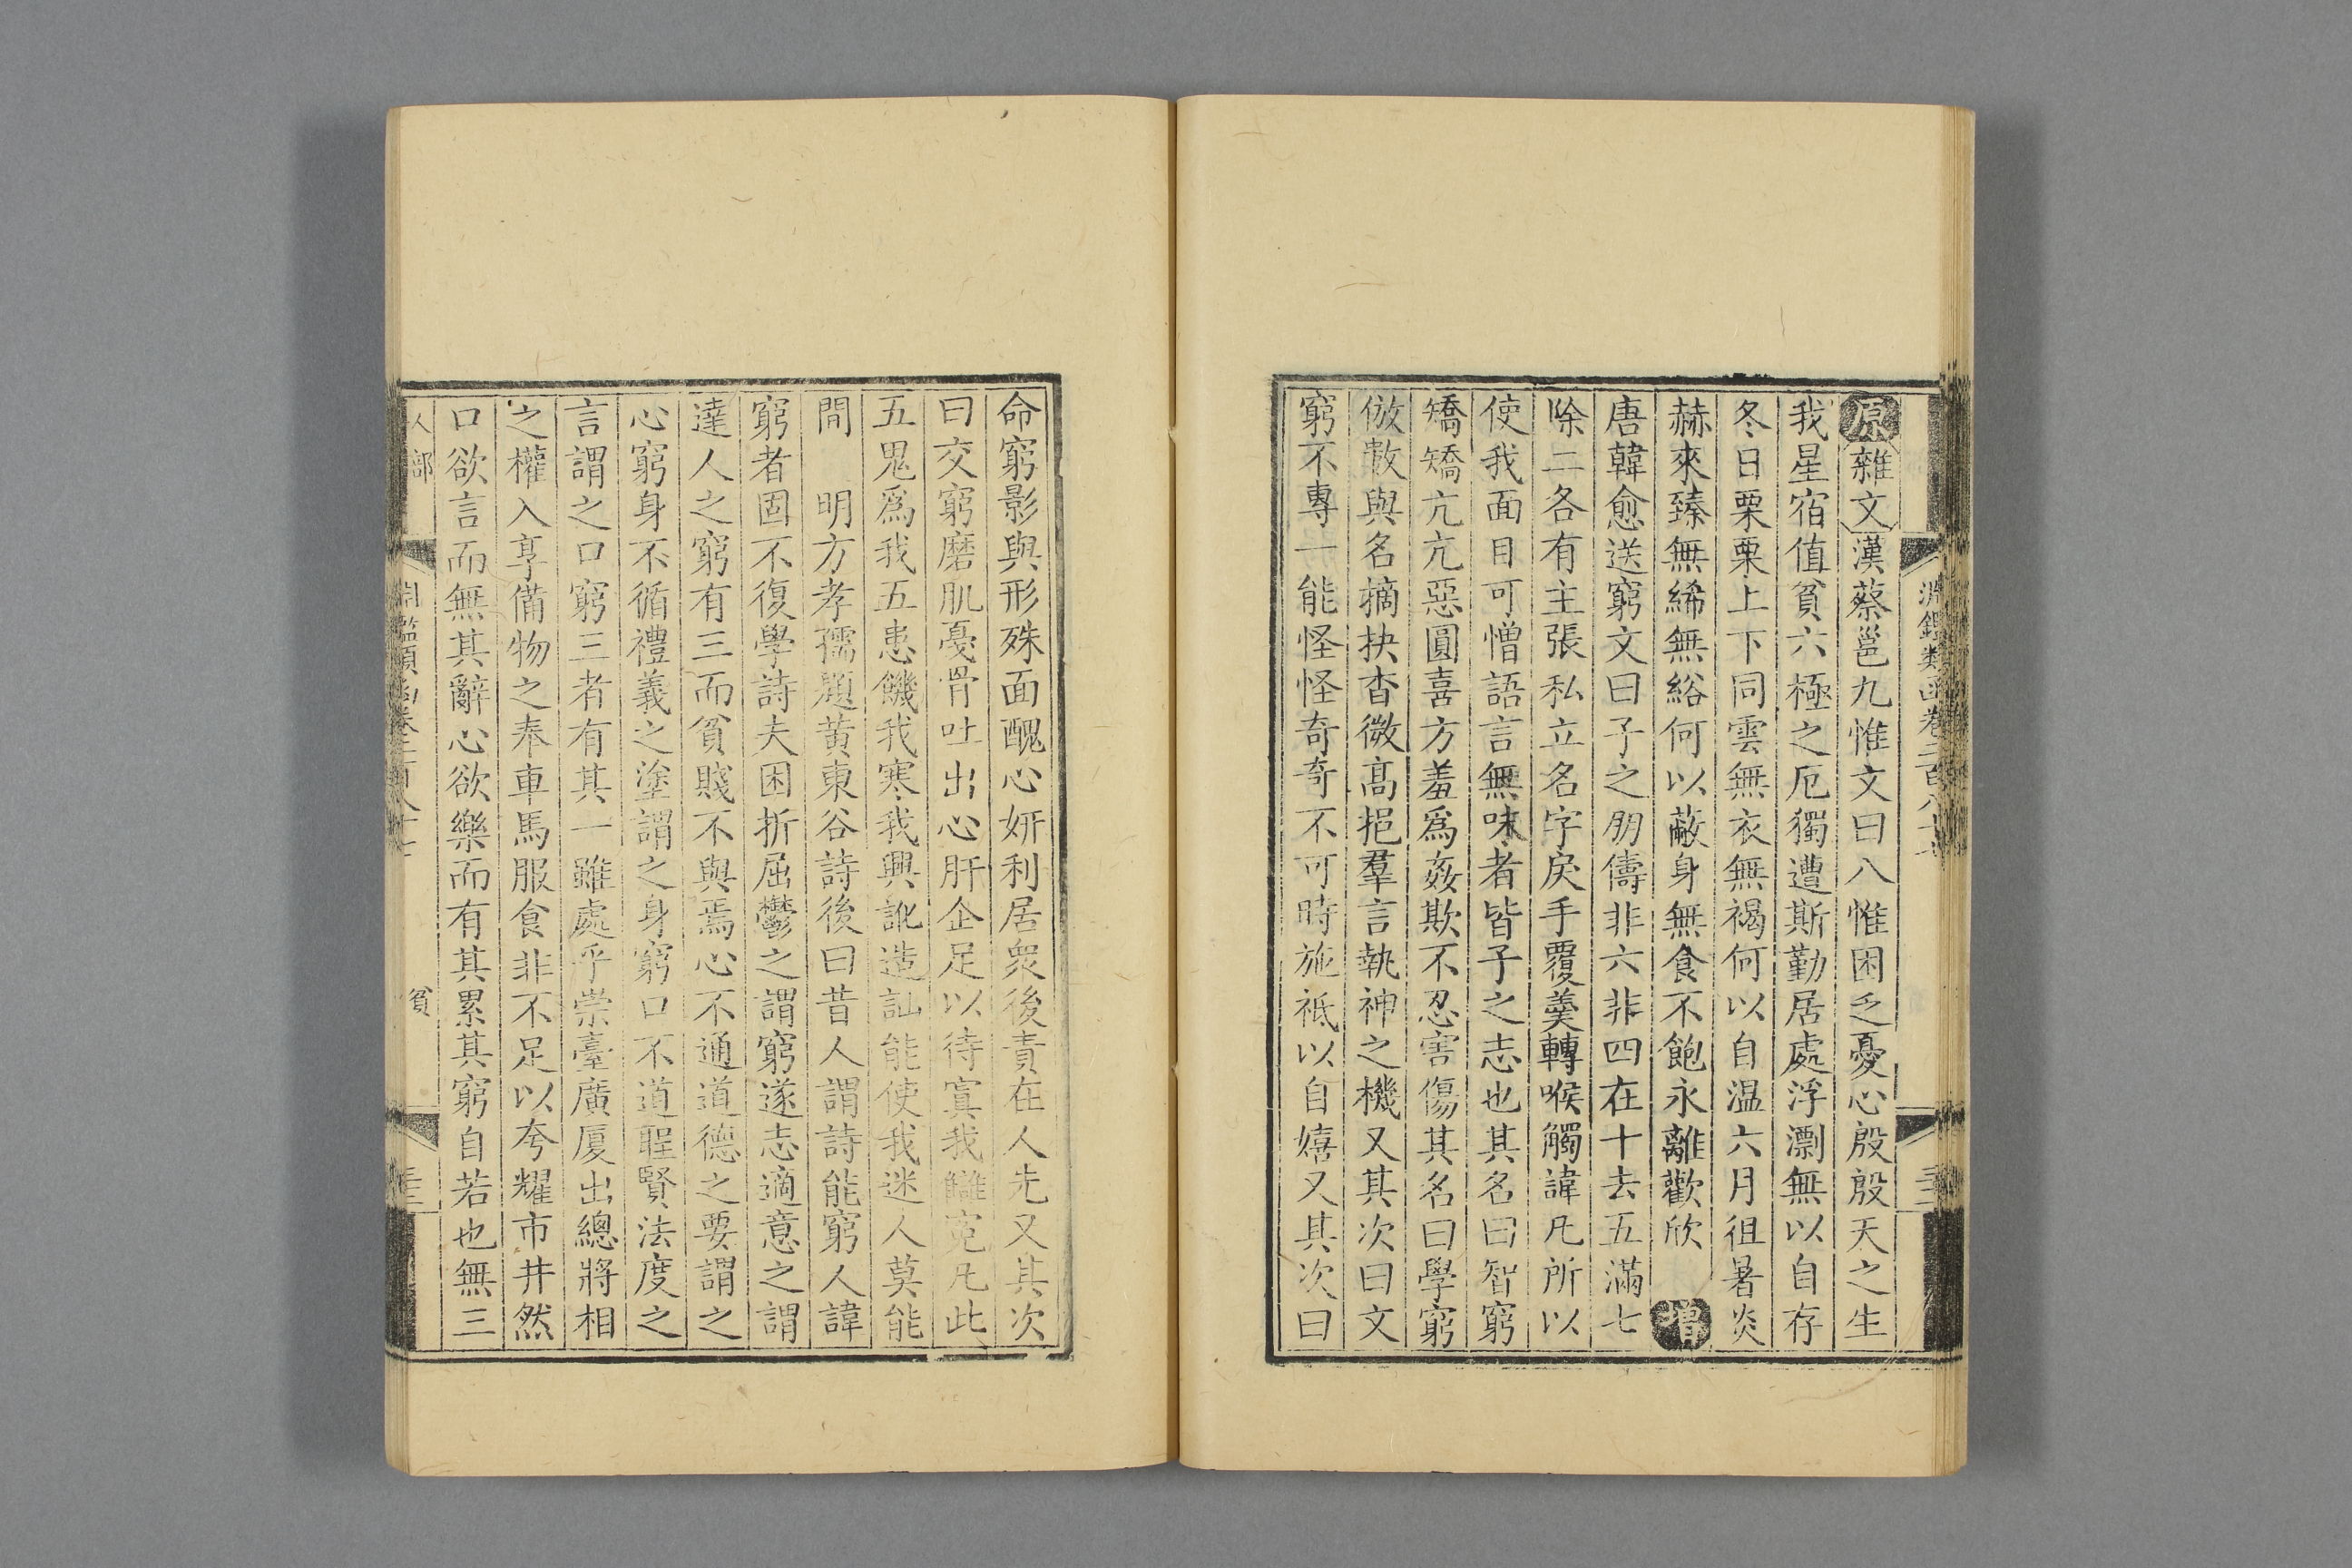 原雜文漢蔡邕九惟文曰八惟困乏憂心殷殷天之生
我星宿值貧六極之厄獨遭斯勤居處浮漂無以自存
冬日栗栗上下同雲無衣無褐何以自温六月徂暑炎
赫來臻無絺無綌何以蔽身無食不飽永離歡欣 增
唐韓愈送窮文曰子之朋儔非六非四在十去五滿七
除二各有主張私立名字戾手覆羹轉喉觸諱凡所以
使我面目可憎語言無味者皆子之志也其名曰智窮
矯矯亢亢惡圓喜方羞爲姦欺不忍害傷其名曰學窮
倣數與名摘抉杳微高挹羣言執神之機又其次曰文
窮不專一能怪怪奇奇不可時施祗以自嬉又其次曰
命窮影與形殊面醜心妍利居衆後責在人先又其次
曰交窮磨肌戞骨吐出心肝企足以待寘我讎寃凡此
五鬼爲我五患饑我寒我興訛造訕能使我迷人莫能
間 明方孝孺題黄東谷詩後曰昔人謂詩能窮人諱
窮者固不復學詩夫困折屈鬱之謂窮遂志適意之謂
達人之窮有三而貧賤不與焉心不通道德之要謂之
心窮身不循禮義之塗謂之身窮口不道聖賢法度之
言謂之口窮三者有其一雖處乎崇臺廣厦出總將相
之權入享備物之奉車馬服食非不足以夸耀市井然
口欲言而無其辭心欲樂而有其累其窮自若也無三
人部
淵鑑類函卷二百八十七
貧